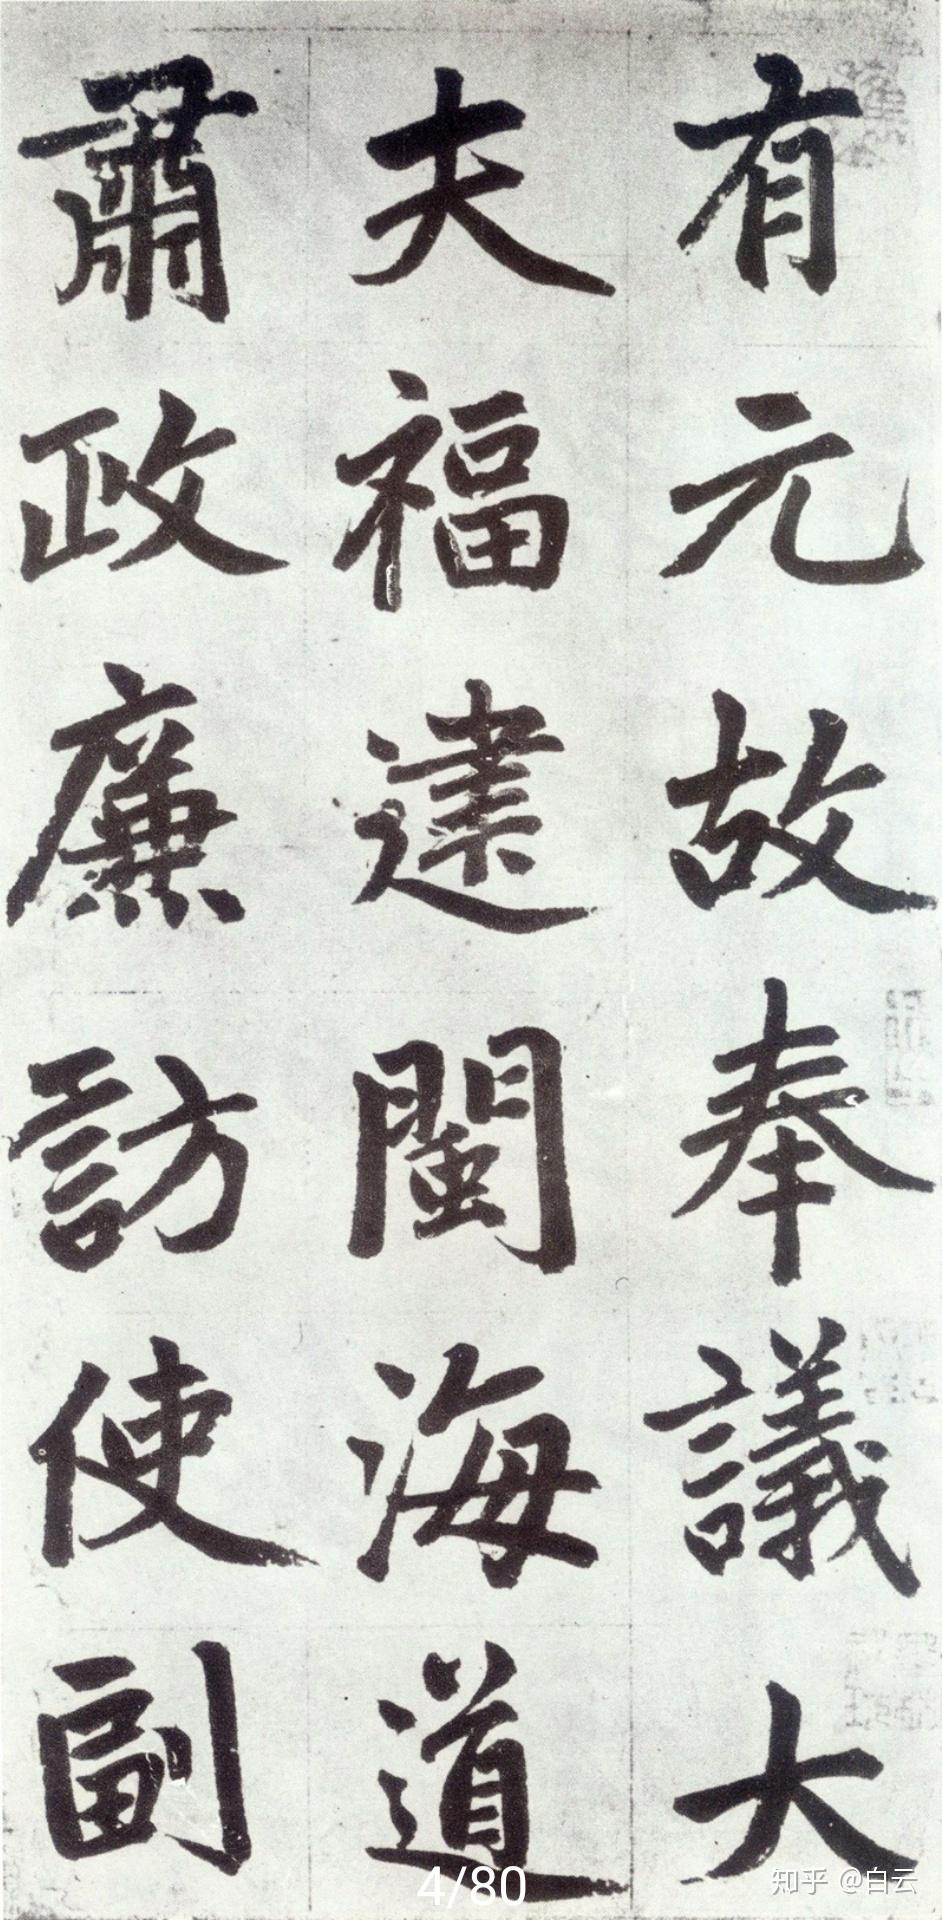 有元故奉議大
夫福建閩海道
肅政廉訪使副
4/80
知乎 @白云